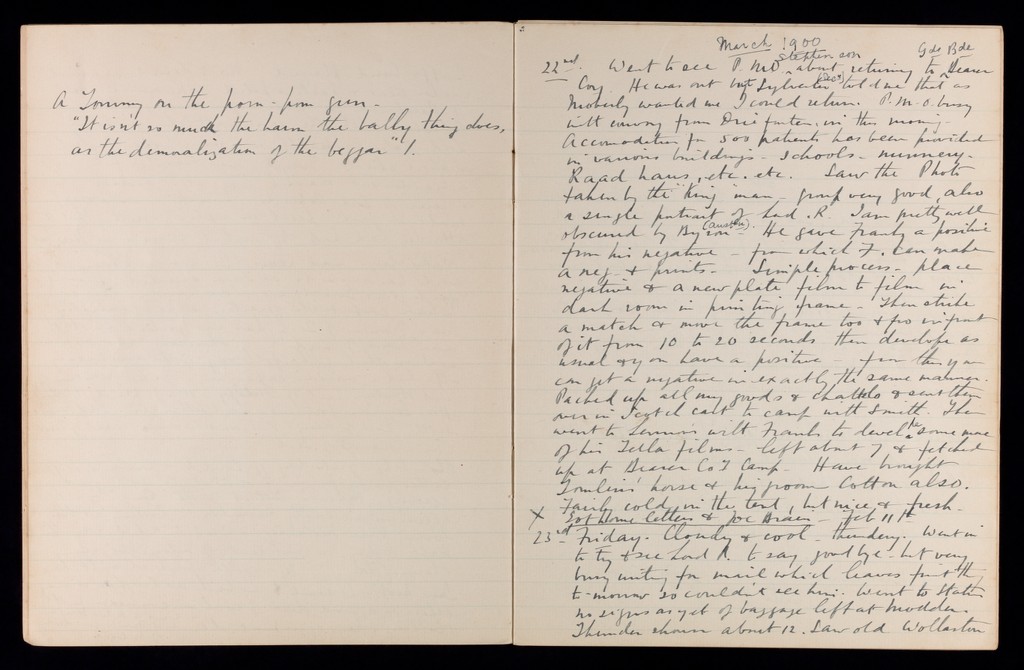 A Tommy on the pom-pom gun -
"It isn't so much the harm the bally thing does,
as the demoralization of the beggar"!.
March 1900
Gds Bde
22nd. Went to see P.M.O. Stephenson about returning to Bearer
Coy. He was out but Sylvester told me that as
Moberly wanted me I could return. P.M.O. busy
with convoy from Driefontein in this morning.
Accomodation for 500 patients has been provided
in various buildings - Schools - nunnery -
Raad haus, etc. etc. Saw the Photo
taken by the "King" man - group very good, also
a single portrait of Lord R. I am pretty well
obscured by Byron (Aust:n). He gave Franky a positive
from his negative - from which F. can make
a neg. & prints - Simple process - place
negative & a new plate film to film in
dark room in printing frame - Then strike
a match & move the frame too & fro in front
of it from 10 to 20 seconds then develope as
usual & you have a positive - from this you
can get a negative in exactly the same manner.
Packed up all my goods & chattels & sent them
over in Scotch cart to camp with Smith. Then
went to with Franks to develope some more
of his films - left about 7 & fetched
up at Bearer Coy's Camp - Have brought
Tomlins' horse & his groom Cotton also.
Fairly cold in the tent, but nice & fresh -
X Got home letters & Joe - Feb 11th
23rd Friday - Cloudy & cool - thundery. Went in
to try & see Lord R. to say good bye - but very
busy writing for mail which leaves first thing
to-morrow so couldn't see him. Went to Station
no signs as yet of baggage left at Modder.
Thunder shower about 12. Saw old Wollaston